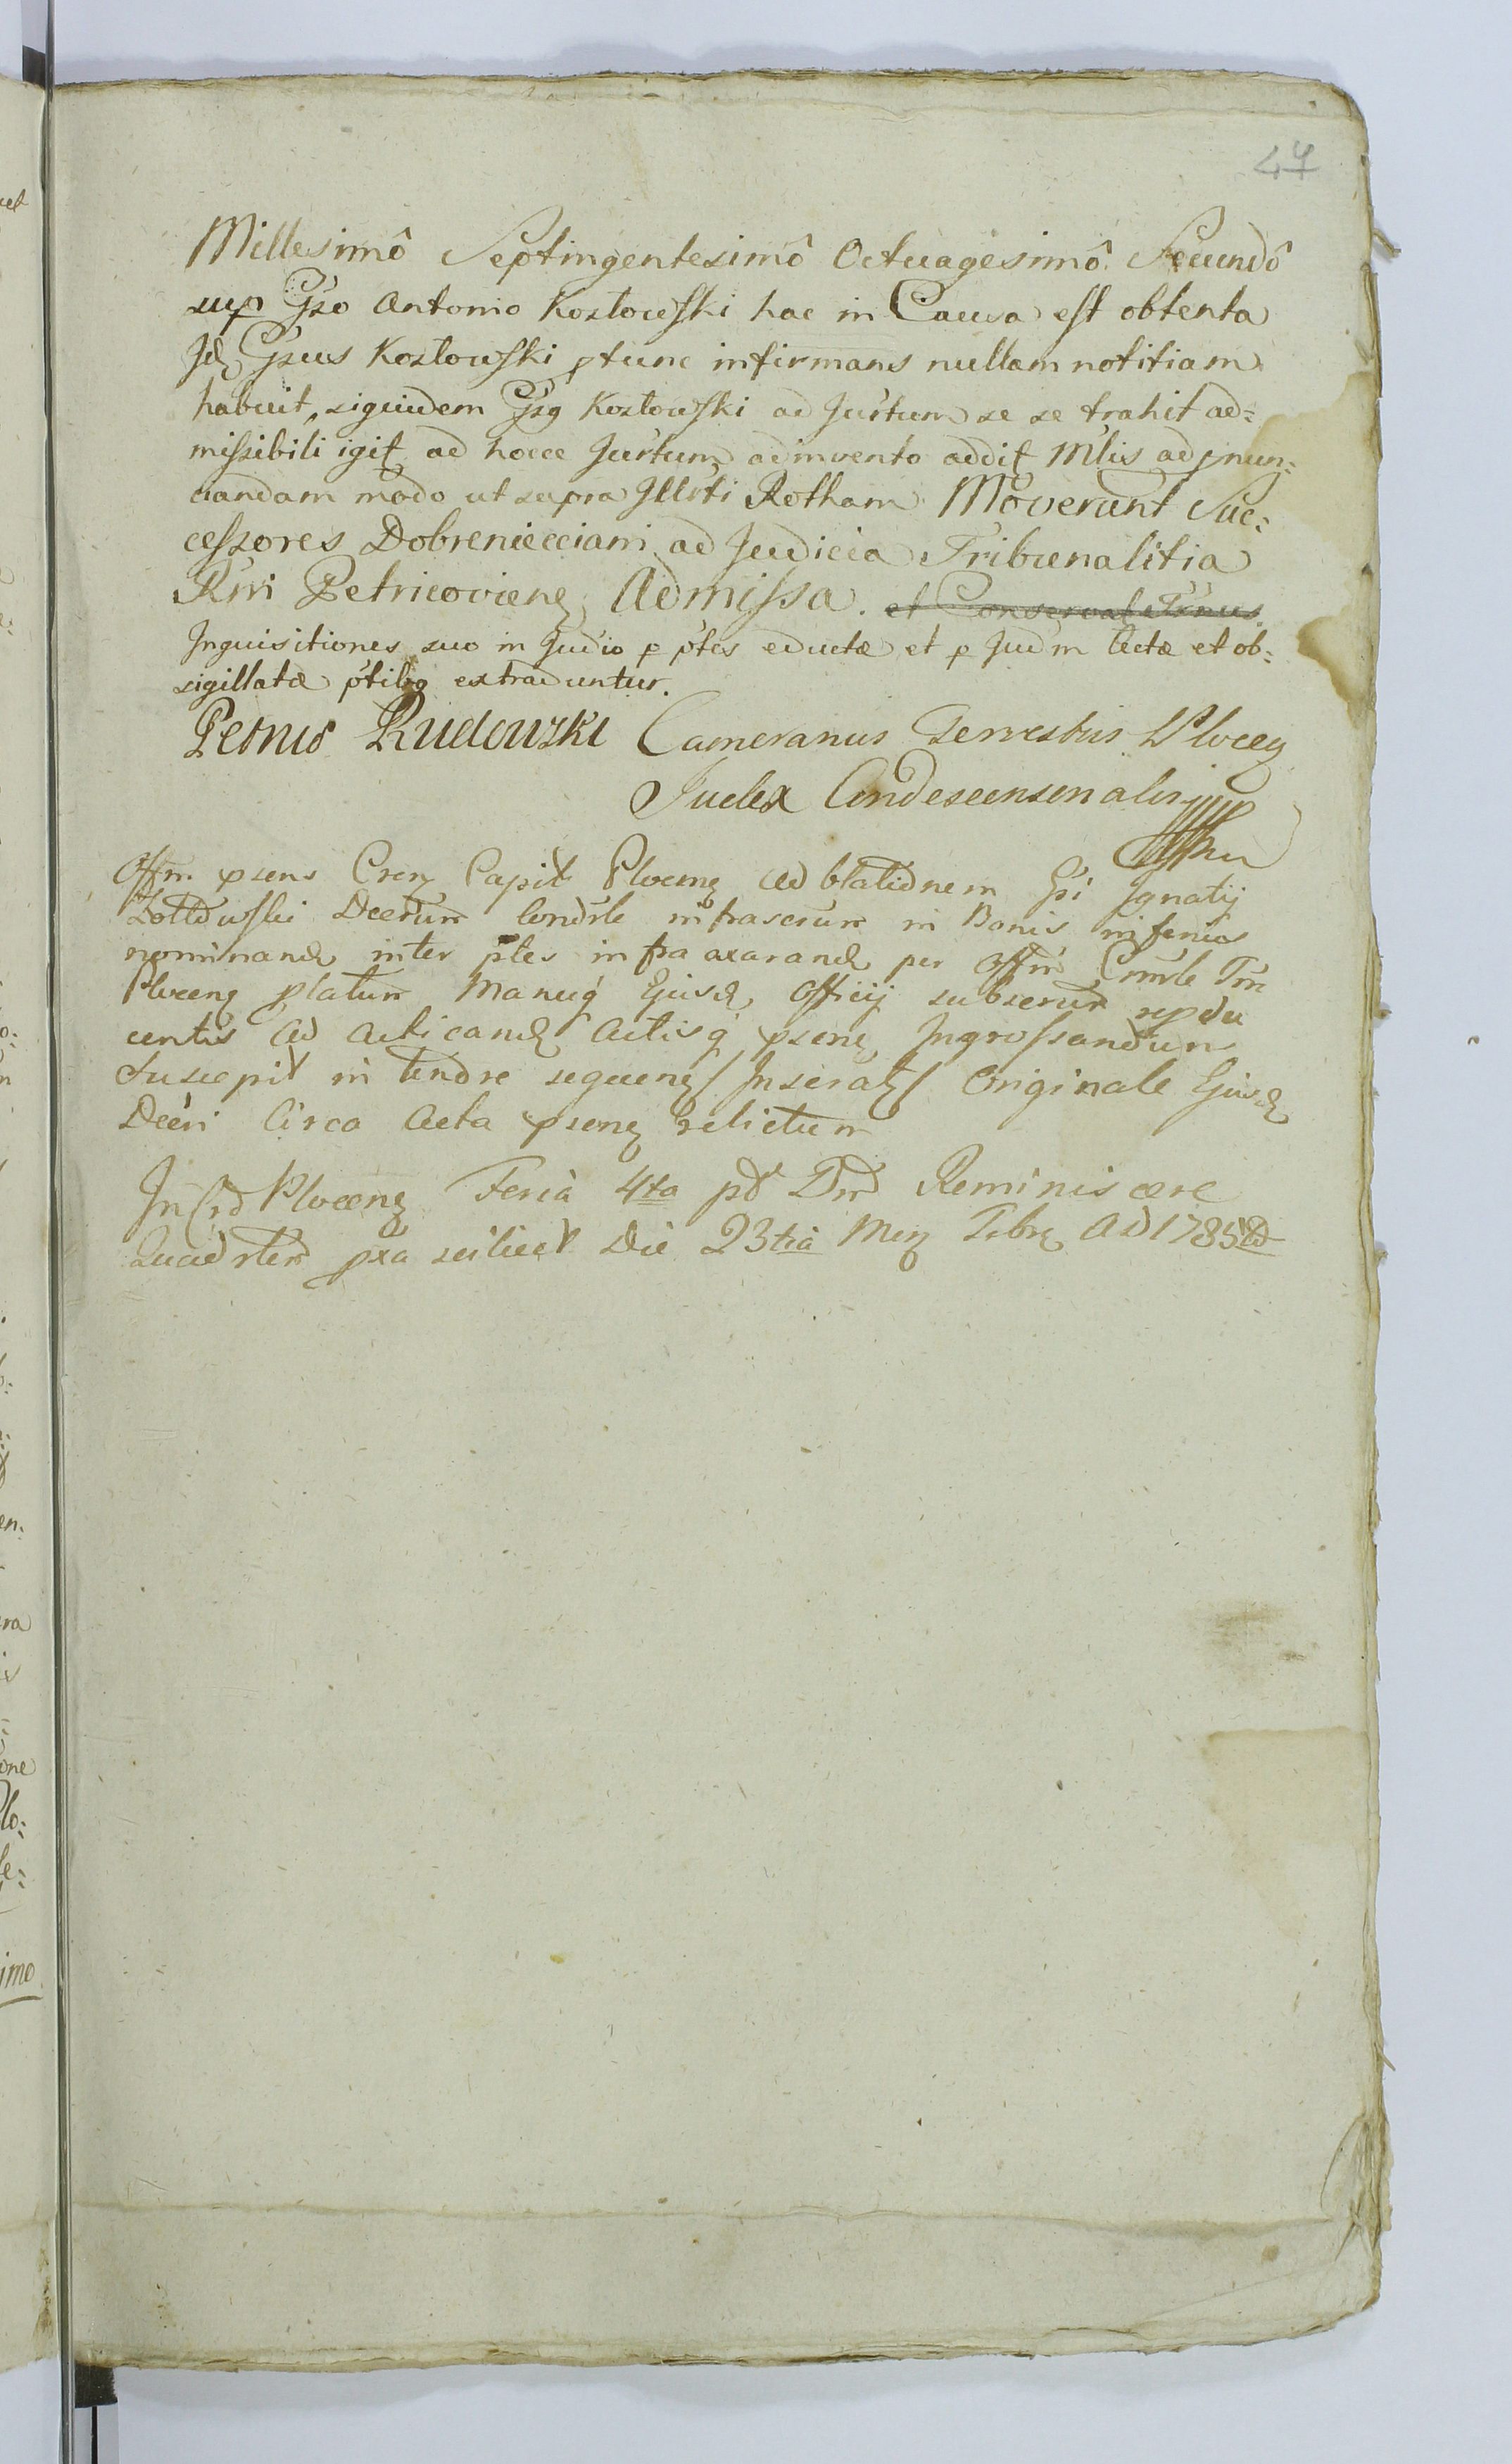 47
Millesimô Septingentesimô Octuagesimô Secundô
sup Gso Antonio Kozłowski hac in Causa est obtenta
Id Gsus Kozłowski ptunc infirmans nullam notitiam
habuit, siquidem Gsg Kozłowski ad Jurtum se se trahit ad=
missibili igit ad hocce Jurtum adinvento addit Mlis ad pnun=
ciandam modo ut supra Illrti Rotham Moverunt Suc=
cessores Dobreniecciani ad Judicia Tribunalitia
Rni Petricoviens Admissa. et Conservat Trnus
Inquisitiones suo in Judio p ptes eductæ et p Judm Actæ et ob=
sigillatæ ptibg extraduntur.
Petrus Rudowski Camerarius Terrestris Plocen
Judex Condescensionalis
Offm psens Cren Capit Plocens ad blationem Gsi Ignatij
Decrtum Condrle infrascrum in Bonis inferius
nominand inter ptes infra axarand per Offm Cmrle Trm
Plocens platum Manuq Ejusd Officij subscrum repdu
centis ad acticand actisq psens Ingrossandum
Suscepit in tendre sequens / Inserat / Originale Ejusd
Decri Circa Acta psens relictum
In Crd Plocens Feria 4ta pd Dnd Reminiscere
Quadrlem pxa scilicet Die 23tia Mens Febrs AD 1785to